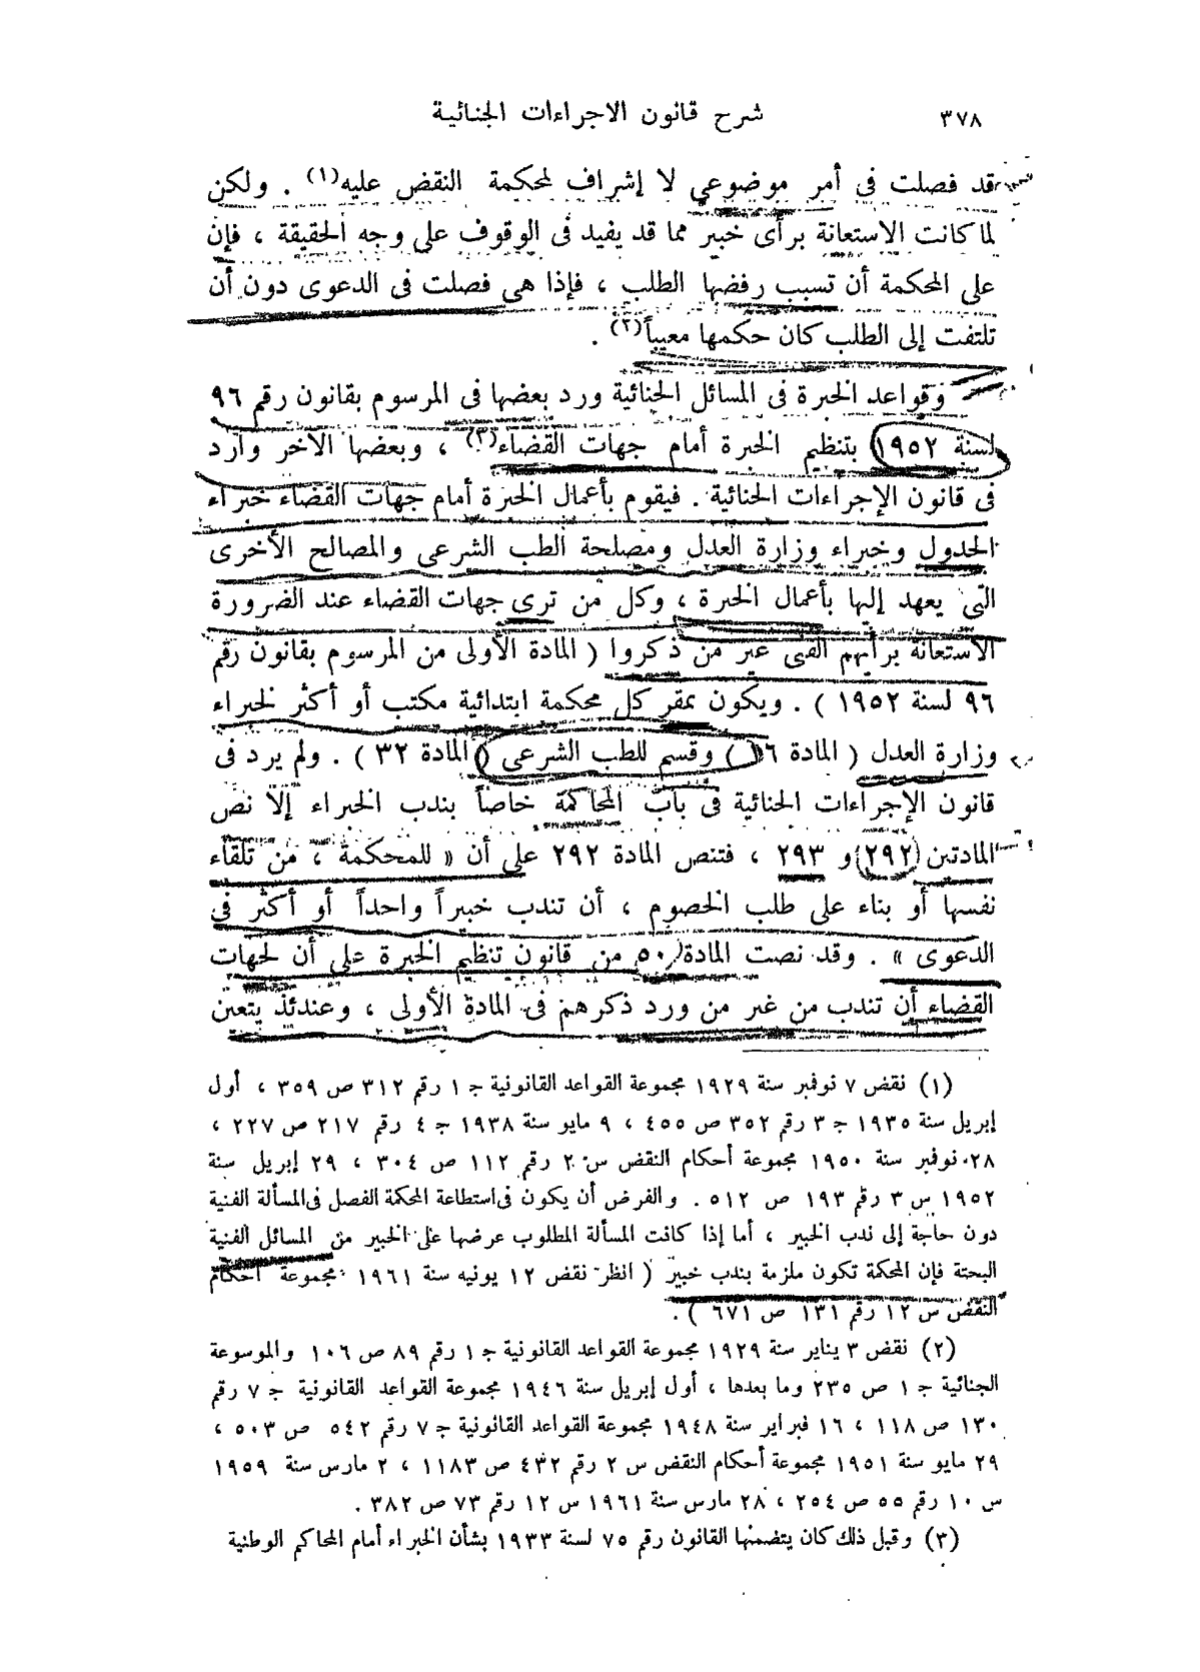 ٣٧٨
شرح قانون الاجراءات الجنائية
قد فصلت فى أمر موضوعى لا إشراف لمحكمة النقض عليه(١) . ولكن
لما كانت الاستعانة برأى خبير مما قد يفيد فى الوقوف على وجه الحقيقة ، فإن
على المحكمة أن تسبب رفضها الطلب ، فإذا هى فصلت فى الدعوى دون أن
تلتفت إلى الطلب كان حكمها معيباً(٢) .
وقواعد الخبرة فى المسائل الجنائية ورد بعضها فى المرسوم بقانون رقم ٩٦
لسنة ١٩٥٢ بتنظيم الخبرة أمام جهات القضاء(٣) ، وبعضها الآخر وارد
فى قانون الإجراءات الجنائية . فيقوم بأعمال الخبرة أمام جهات القضاء خبراء
الجدول وخبراء وزارة العدل ومصلحة الطب الشرعى والمصالح الأخرى
التى يعهد إليها بأعمال الخبرة ، وكل من ترى جهات القضاء عند الضرورة
الاستعانة برأيهم الفنى غير من ذكروا ( المادة الأولى من المرسوم بقانون رقم
٩٦ لسنة ١٩٥٢ ) . ويكون بمقر كل محكمة ابتدائية مكتب أو أكثر لخبراء
وزارة العدل ( المادة ١٦ ) وقسم للطب الشرعى ( المادة ٣٢ ) . ولم يرد فى
قانون الإجراءات الجنائية فى باب المحاكمة خاصاً بندب الخبراء إلا نص
المادتين (٢٩٢) و ٢٩٣ ، فتنص المادة ٢٩٢ على أن « للمحكمة ، من تلقاء
نفسها أو بناء على طلب الخصوم ، أن تندب خبيراً واحداً أو أكثر فى
الدعوى » . وقد نصت المادة ٥٠ من قانون تنظيم الخبرة على أن لجهات
القضاء أن تندب من غير من ورد ذكرهم فى المادة الأولى ، وعندئذ يتعين
(١) نقض ٧ نوفمبر سنة ١٩٢٩ مجموعة القواعد القانونية ج ١ رقم ٣١٢ ص ٣٥٩ ، أول
إبريل سنة ١٩٣٥ ج ٣ رقم ٣٥٢ ص ٤٥٥ ، ٩ مايو سنة ١٩٣٨ ج ٤ رقم ٢١٧ ص ٢٢٧ ،
٢٨ نوفمبر سنة ١٩٥٠ مجموعة أحكام النقض س ٢ رقم ١١٢ ص ٣٠٤ ، ٢٩ إبريل سنة
١٩٥٢ س ٣ رقم ١٩٣ ص ٥١٢ . والفرض أن يكون فى استطاعة المحكمة الفصل فى المسألة الفنية
دون حاجة إلى ندب الخبير ، أما إذا كانت المسألة المطلوب عرضها على الخبير من المسائل الفنية
البحتة فإن المحكمة تكون ملزمة بندب خبير ( انظر نقض ١٢ يونيه سنة ١٩٦١ مجموعة أحكام
النقض س ١٢ رقم ١٣١ ص ٦٧١ ) .
(٢) نقض ٣ يناير سنة ١٩٢٩ مجموعة القواعد القانونية ج ١ رقم ٨٩ ص ١٠٦ والموسوعة
الجنائية ج ١ ص ٢٣٥ وما بعدها ، أول إبريل سنة ١٩٤٦ مجموعة القواعد القانونية ج ٧ رقم
١٣٠ ص ١١٨ ، ١٦ فبراير سنة ١٩٤٨ مجموعة القواعد القانونية ج ٧ رقم ٥٤٢ ص ٥٠٣ ،
٢٩ مايو سنة ١٩٥١ مجموعة أحكام النقض س ٢ رقم ٤٣٢ ص ١١٨٣ ، ٢ مارس سنة ١٩٥٩
س ١٠ رقم ٥٥ ص ٢٥٤ ، ٢٨ مارس سنة ١٩٦١ س ١٢ رقم ٧٣ ص ٣٨٢ .
(٣) وقبل ذلك كان يتضمنها القانون رقم ٧٥ لسنة ١٩٣٣ بشأن الخبراء أمام المحاكم الوطنية